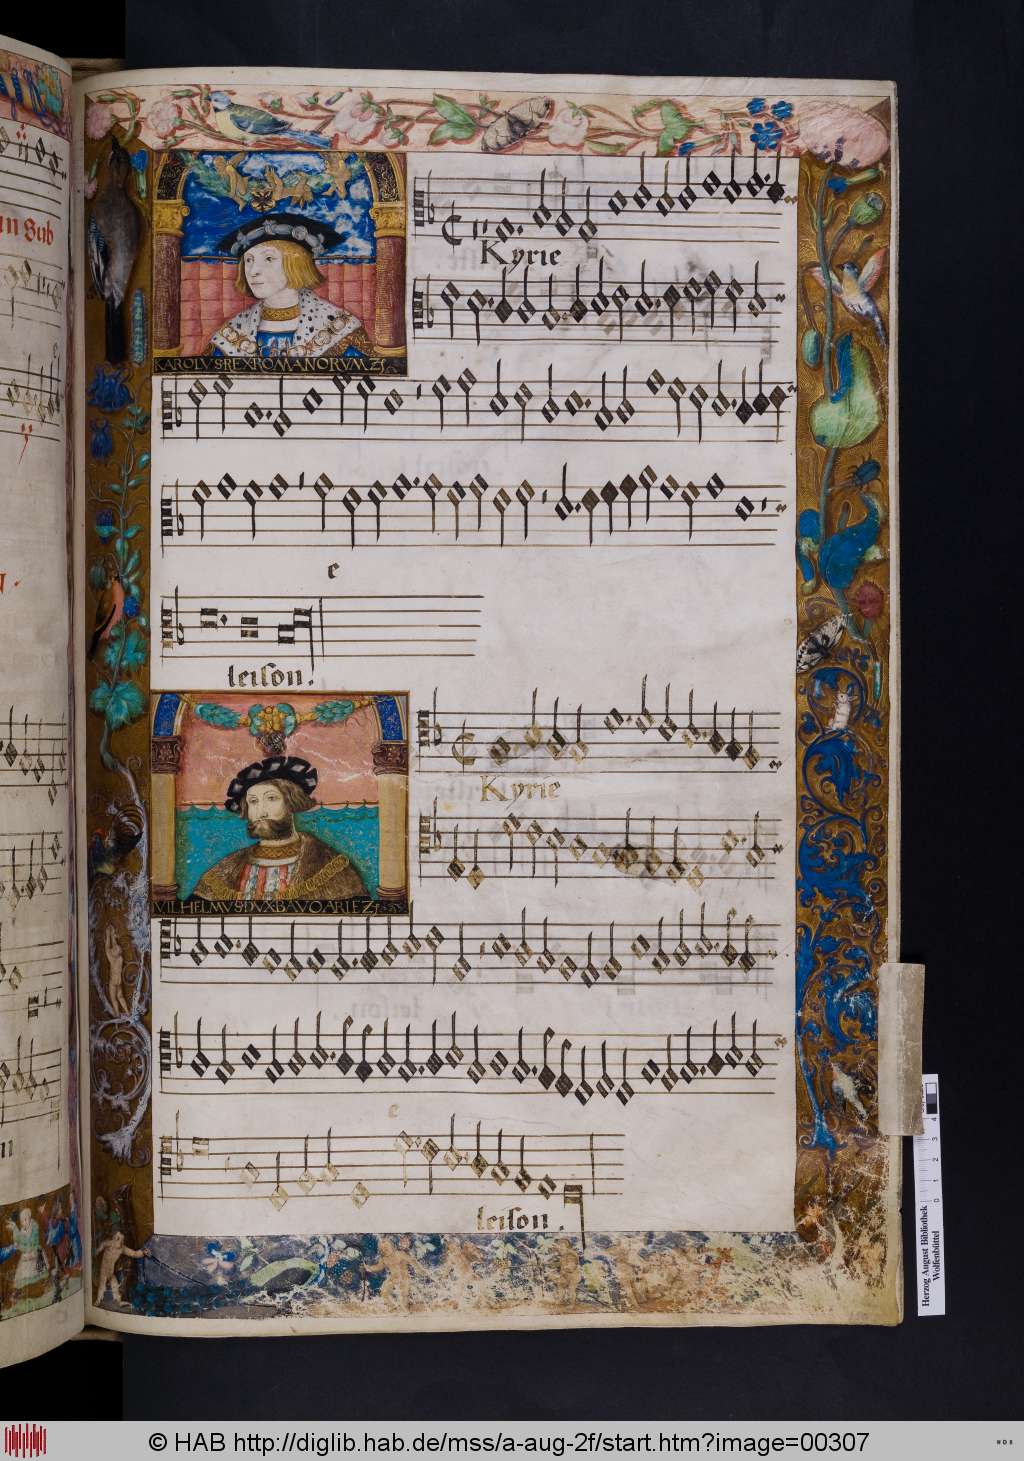 in Sub
KAROLVS·REX·ROMANORVM·Zᶜ
Kyrie
e
leiſon.
VILHELMVS·DVX·BAVOARIE Zᶜ
Kyrie
e
leiſon.
Herzog August Bibliothek
Wolfenbüttel
0 1 2 3 4
© HAB http://diglib.hab.de/mss/a-aug-2f/start.htm?image=00307